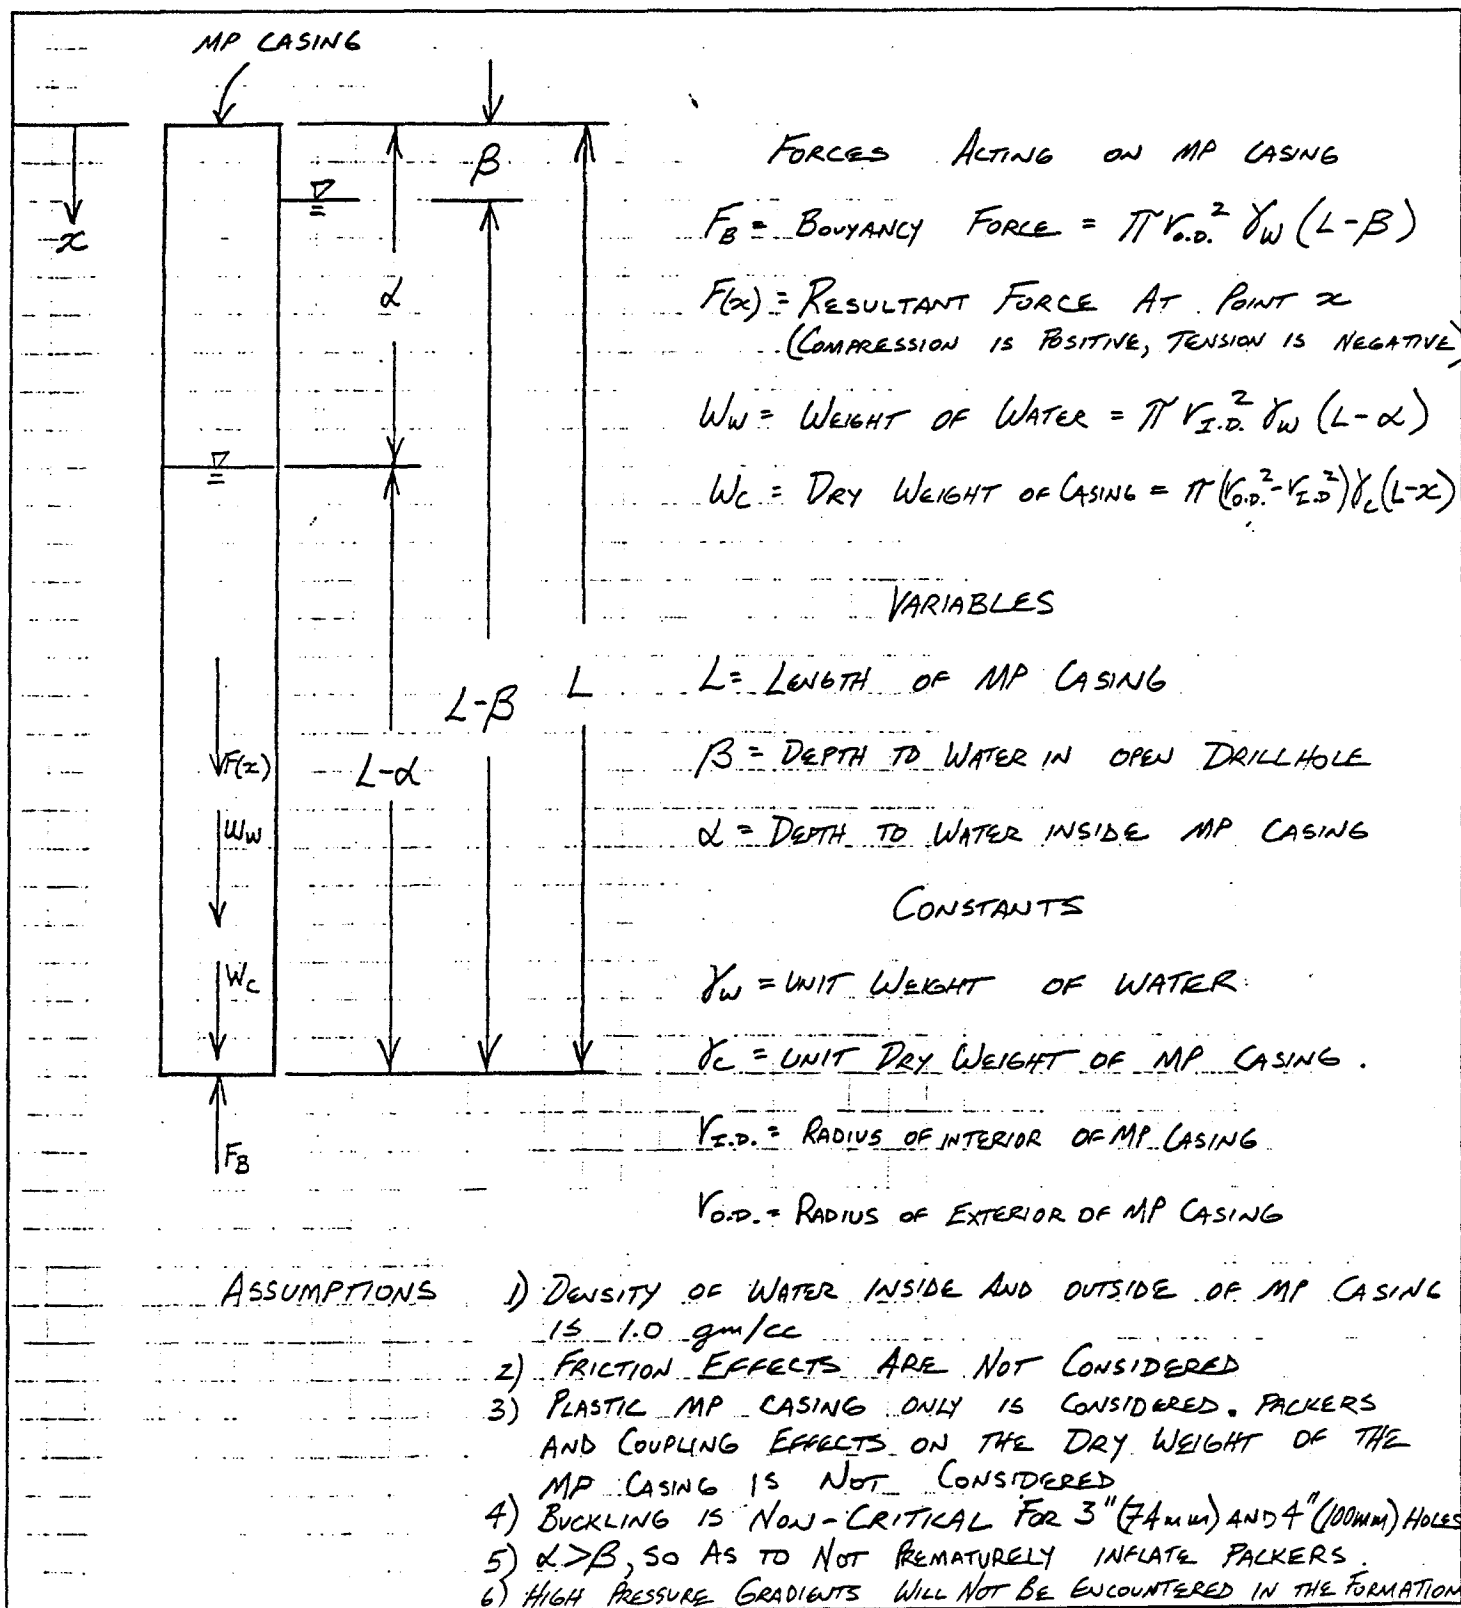 MP CASING
β
x
α
L-β
L
L-α
F(x)
Ww
Wc
FB
FORCES ACTING ON MP CASING
FB = BOUYANCY FORCE = π r_O.D.² γw (L-β)
F(x) = RESULTANT FORCE AT POINT x
(COMPRESSION IS POSITIVE, TENSION IS NEGATIVE)
Ww = WEIGHT OF WATER = π r_I.D.² γw (L-α)
Wc = DRY WEIGHT OF CASING = π (r_O.D.² - r_I.D²) γc (L-x)
VARIABLES
L = LENGTH OF MP CASING
β = DEPTH TO WATER IN OPEN DRILLHOLE
α = DEPTH TO WATER INSIDE MP CASING
CONSTANTS
γw = UNIT WEIGHT OF WATER
γc = UNIT DRY WEIGHT OF MP CASING.
r_I.D. = RADIUS OF INTERIOR OF MP CASING
r_O.D. = RADIUS OF EXTERIOR OF MP CASING
ASSUMPTIONS 1) DENSITY OF WATER INSIDE AND OUTSIDE OF MP CASING
IS 1.0 gm/cc
2) FRICTION EFFECTS ARE NOT CONSIDERED
3) PLASTIC MP CASING ONLY IS CONSIDERED. PACKERS
AND COUPLING EFFECTS ON THE DRY WEIGHT OF THE
MP CASING IS NOT CONSIDERED
4) BUCKLING IS NON-CRITICAL FOR 3" (74mm) AND 4" (100mm) HOLES
5) α>β, SO AS TO NOT PREMATURELY INFLATE PACKERS.
6) HIGH PRESSURE GRADIENTS WILL NOT BE ENCOUNTERED IN THE FORMATION